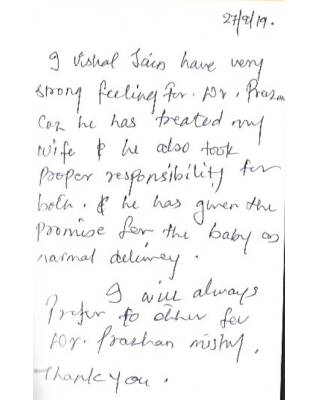 27/9/19.
I Vishal Jain have very
strong feeling for. Dr. Prazn
Coz he has treated my
wife & he also took
proper responsibility for
both. & he has given the
promise for the baby as
narmal delivery.
I will always
Prefer to other for
Dr. Prashan mistry.
Thank you.